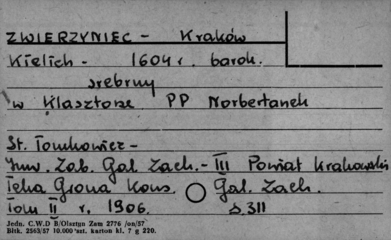 ZWIERZYNIEC - Kraków
Kielich - 1604 r. barok.
srebrny
w Klasztorze PP Norbertanek
St. Tomkowicz -
Inw. Zab. Gal. Zach. - III Powiat Krakowski
Teka Grona Kons. Gal. Zach.
Tom II r. 1906. s. 311
Jedn. C.W.D B/Olsztyn Zam 2776 /on/57
Bltk. 2563/57 10.000 szt. karton kl. 7 g 220.